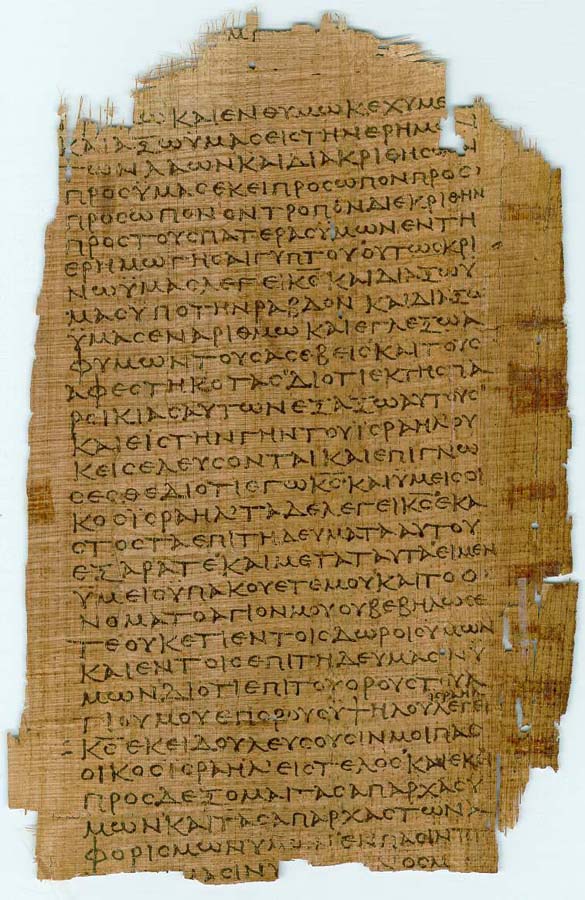 Μ
Ω ΚΑΙ ΕΝ ΘΥΜΩ ΚΕΧΥΜΕ
ΚΑΙ ΑΞΩ ΥΜΑϹ ΕΙϹ ΤΗΝ ΕΡΗΜΟ
ΤΩΝ ΛΑΩΝ ΚΑΙ ΔΙΑΚΡΙΘΗϹΟ
ΠΡΟϹ ΥΜΑϹ ΕΚΕΙ ΠΡΟϹΩΠΟΝ ΠΡΟϹ
ΠΡΟϹΩΠΟΝ ΟΝ ΤΡΟΠΟΝ ΔΙΕΚΡΙΘΗΝ
ΠΡΟϹ ΤΟΥϹ ΠΑΤΕΡΑϹ ΥΜΩΝ ΕΝ ΤΗ
ΕΡΗΜΩ ΓΗϹ ΑΙΓΥΠΤΟΥ ΟΥΤΩϹ ΚΡΙ
ΝΩ ΥΜΑϹ ΛΕΓΕΙ Κ̅Ϲ̅ ΚΑΙ ΔΙΑΞΩ Υ
ΜΑϹ ΥΠΟ ΤΗΝ ΡΑΒΔΟΝ ΚΑΙ ΔΙΑΞΩ
ΫΜΑϹ ΕΝ ΑΡΙΘΜΩ ΚΑΙ ΕΓΛΕΞΩ Α
Φ ΥΜΩΝ ΤΟΥϹ ΑϹΕΒΕΙϹ ΚΑΙ ΤΟΥϹ
ΑΦΕϹΤΗΚΟΤΑϹ ΔΙΟΤΙ ΕΚ ΤΗϹ ΠΑ
ΡΟΙΚΙΑϹ ΑΥΤΩΝ ΕΞΑΞΩ ΑΥΤΟΥϹ
ΚΑΙ ΕΙϹ ΤΗΝ ΓΗΝ ΤΟΥ ΙϹΡΑΗΛ ΟΥ
Κ ΕΙϹΕΛΕΥϹΟΝΤΑΙ ΚΑΙ ΕΠΙΓΝΩ
ϹΕϹΘΕ ΔΙΟΤΙ ΕΓΩ Κ̅Ϲ̅ ΚΑΙ ΥΜΕΙϹ ΟΙ
ΚΟϹ ΙϹΡΑΗΛ ΤΑΔΕ ΛΕΓΕΙ Κ̅Ϲ̅ ΕΚΑ
ϹΤΟϹ ΤΑ ΕΠΙΤΗΔΕΥΜΑΤΑ ΑΥΤΟΥ
ΕΞΑΡΑΤΕ ΚΑΙ ΜΕΤΑ ΤΑΥΤΑ ΕΙ ΜΕΝ
ΥΜΕΙ ΫΠΑΚΟΥΕΤΕ ΜΟΥ ΚΑΙ ΤΟ Ο
ΝΟΜΑ ΤΟ ΑΓΙΟΝ ΜΟΥ ΟΥ ΒΕΒΗΛΩϹΕ
ΤΕ ΟΥΚΕΤΙ ΕΝ ΤΟΙϹ ΔΩΡΟΙϹ ΥΜΩΝ
ΚΑΙ ΕΝ ΤΟΙϹ ΕΠΙΤΗΔΕΥΜΑϹΙΝ Υ
ΜΩΝ ΔΙΟΤΙ ΕΠΙ ΤΟΥ ΟΡΟΥϹ ΤΟΥ Α
ΙϹΡΑΗΛ
ΓΙΟΥ ΜΟΥ ΕΠ ΟΡΟΥϹ ΥΨΗΛΟΥ ΛΕΓΕΙ
Κ̅Ϲ̅ ΕΚΕΙ ΔΟΥΛΕΥϹΟΥϹΙΝ ΜΟΙ ΠΑϹ
ΟΙΚΟϹ ΙϹΡΑΗΛ ΕΙϹ ΤΕΛΟϹ ΚΑΙ ΕΚΕΙ
ΠΡΟϹΔΕΞΟΜΑΙ ΤΑϹ ΑΠΑΡΧΑϹ Υ
ΜΩΝ ΚΑΙ ΤΑϹ ΑΠΑΡΧΑϹ ΤΩΝ Α
ΦΟΡΙϹΜΩΝ ΥΜ ΕΝ ΠΑϹΙΝ
ΑϹΙΝ Υ ΝΟϹΜ